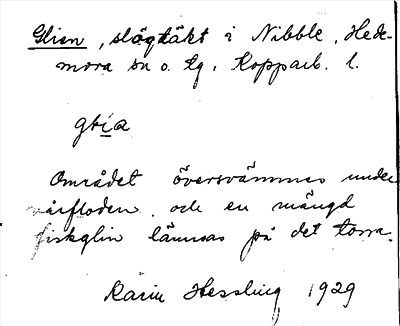 Glien, slågtäkt i Nibble, Hede-
mora sn o. tg, Kopparb. l.
Området översvämmas under
vårfloden och en mängd
fiskglin lämnas på det torra.
Karin Hessling 1929